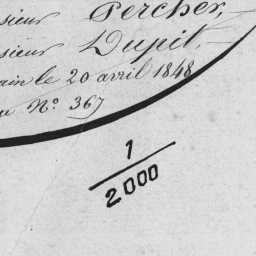 sieur Percher,
sieur Dupit,
ain le 20 avril 1848
au Nº 367
1/2000